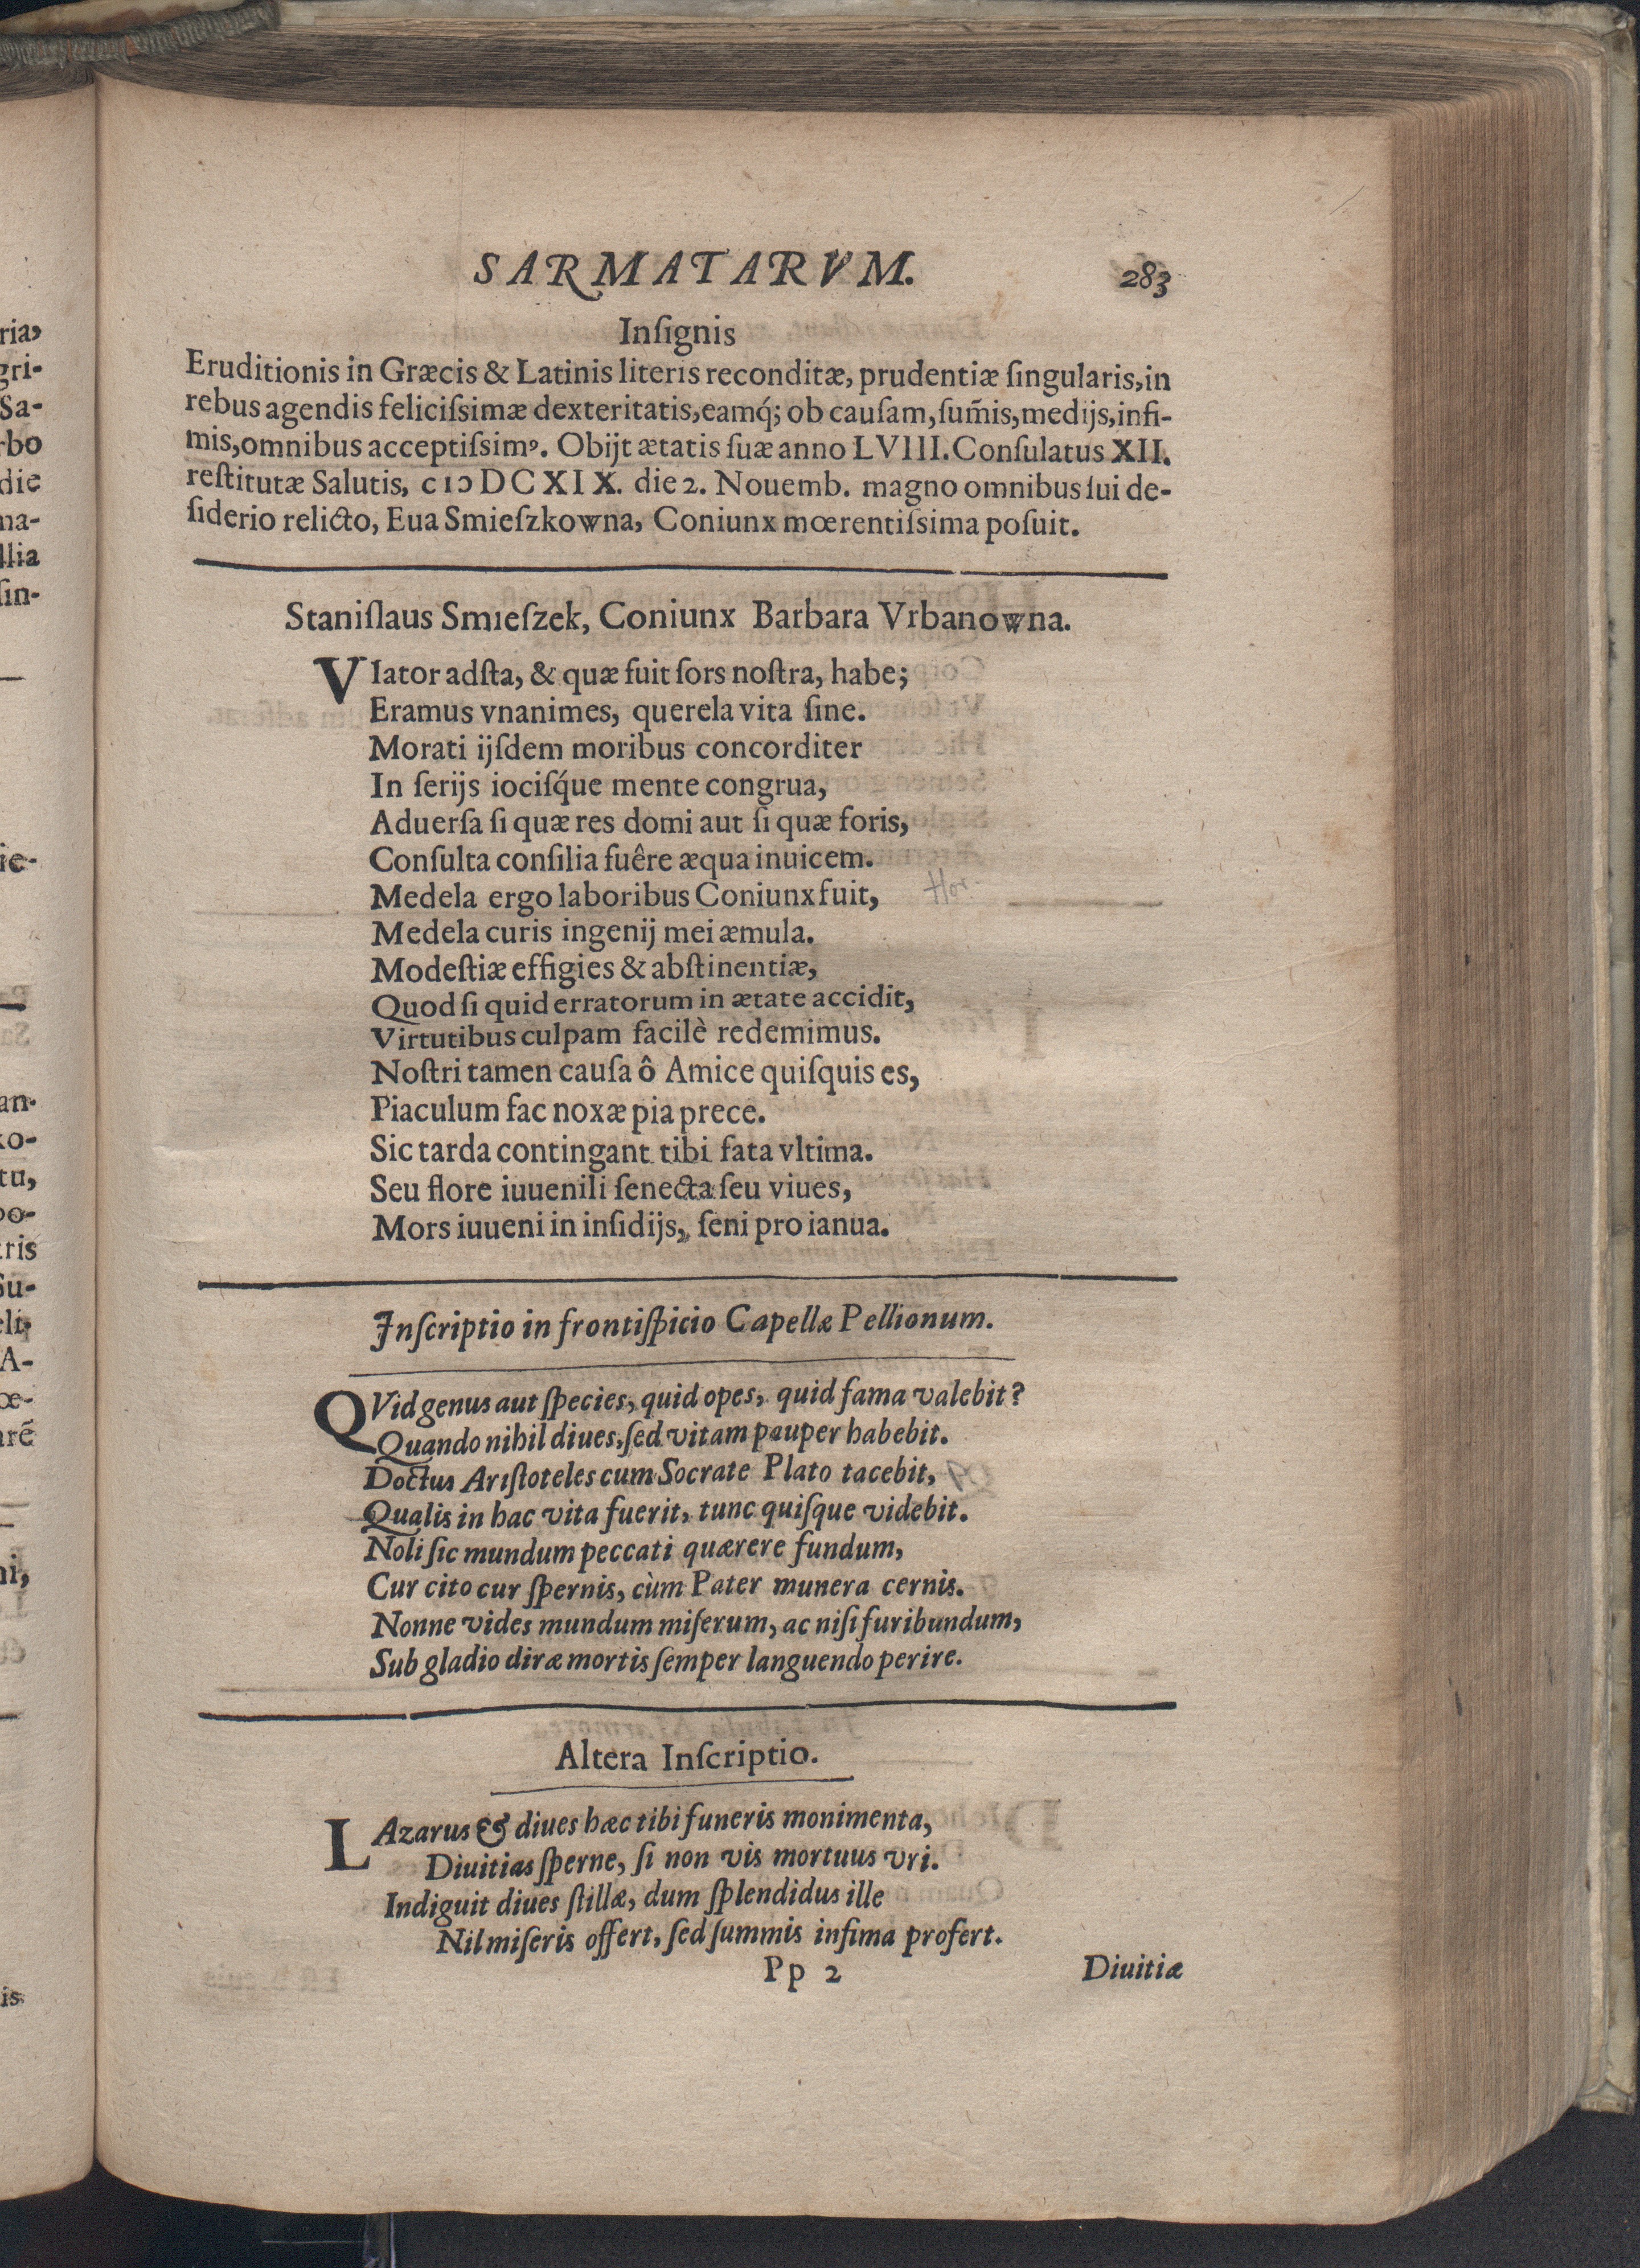 SARMATARVM. 283
Inſignis
Eruditionis in Græcis & Latinis literis reconditæ, prudentiæ ſingularis, in
rebus agendis feliciſsimæ dexteritatis, eamq́; ob cauſam, ſum̃is, medijs, infi-
mis, omnibus acceptiſsimꝰ. Obijt ætatis ſuæ anno LVIII. Conſulatus XII.
reſtitutæ Salutis, cIↃ DC XIX. die 2. Nouemb. magno omnibus ſui de-
ſiderio relicto, Eua Smieſzkowna, Coniunx mœrentiſsima poſuit.
Staniſlaus Smieſzek, Coniunx Barbara Vrbanowna.
VIator adſta, & quæ fuit ſors noſtra, habe;
Eramus vnanimes, querela vita ſine.
Morati ijſdem moribus concorditer
In ſerijs iociſq́ue mente congrua,
Aduerſa ſi quæ res domi aut ſi quæ foris,
Conſulta conſilia fuêre æqua inuicem.
Medela ergo laboribus Coniunx fuit,
Medela curis ingenij mei æmula.
Modeſtiæ effigies & abſtinentiæ,
Quod ſi quid erratorum in ætate accidit,
Virtutibus culpam facilè redemimus.
Noſtri tamen cauſa ô Amice quiſquis es,
Piaculum fac noxæ pia prece.
Sic tarda contingant tibi fata vltima.
Seu flore iuuenili ſenecta ſeu viues,
Mors iuueni in inſidijs, ſeni pro ianua.
Inſcriptio in frontiſpicio Capellæ Pellionum.
QVid genus aut ſpecies, quid opes, quid fama valebit?
Quando nihil diues, ſed vitam pauper habebit.
Doctus Ariſtoteles cum Socrate Plato tacebit,
Qualis in hac vita fuerit, tunc quiſque videbit.
Noli ſic mundum peccati quærere fundum,
Cur cito cur ſpernis, cùm Pater munera cernis.
Nonne vides mundum miſerum, ac niſi furibundum,
Sub gladio diræ mortis ſemper languendo perire.
Altera Inſcriptio.
LAzarus & diues hæc tibi funeris monimenta,
Diuitias ſperne, ſi non vis mortuus vri.
Indiguit diues ſtillæ, dum ſplendidus ille
Nil miſeris offert, ſed ſummis infima profert.
Pp 2 Diuitiæ